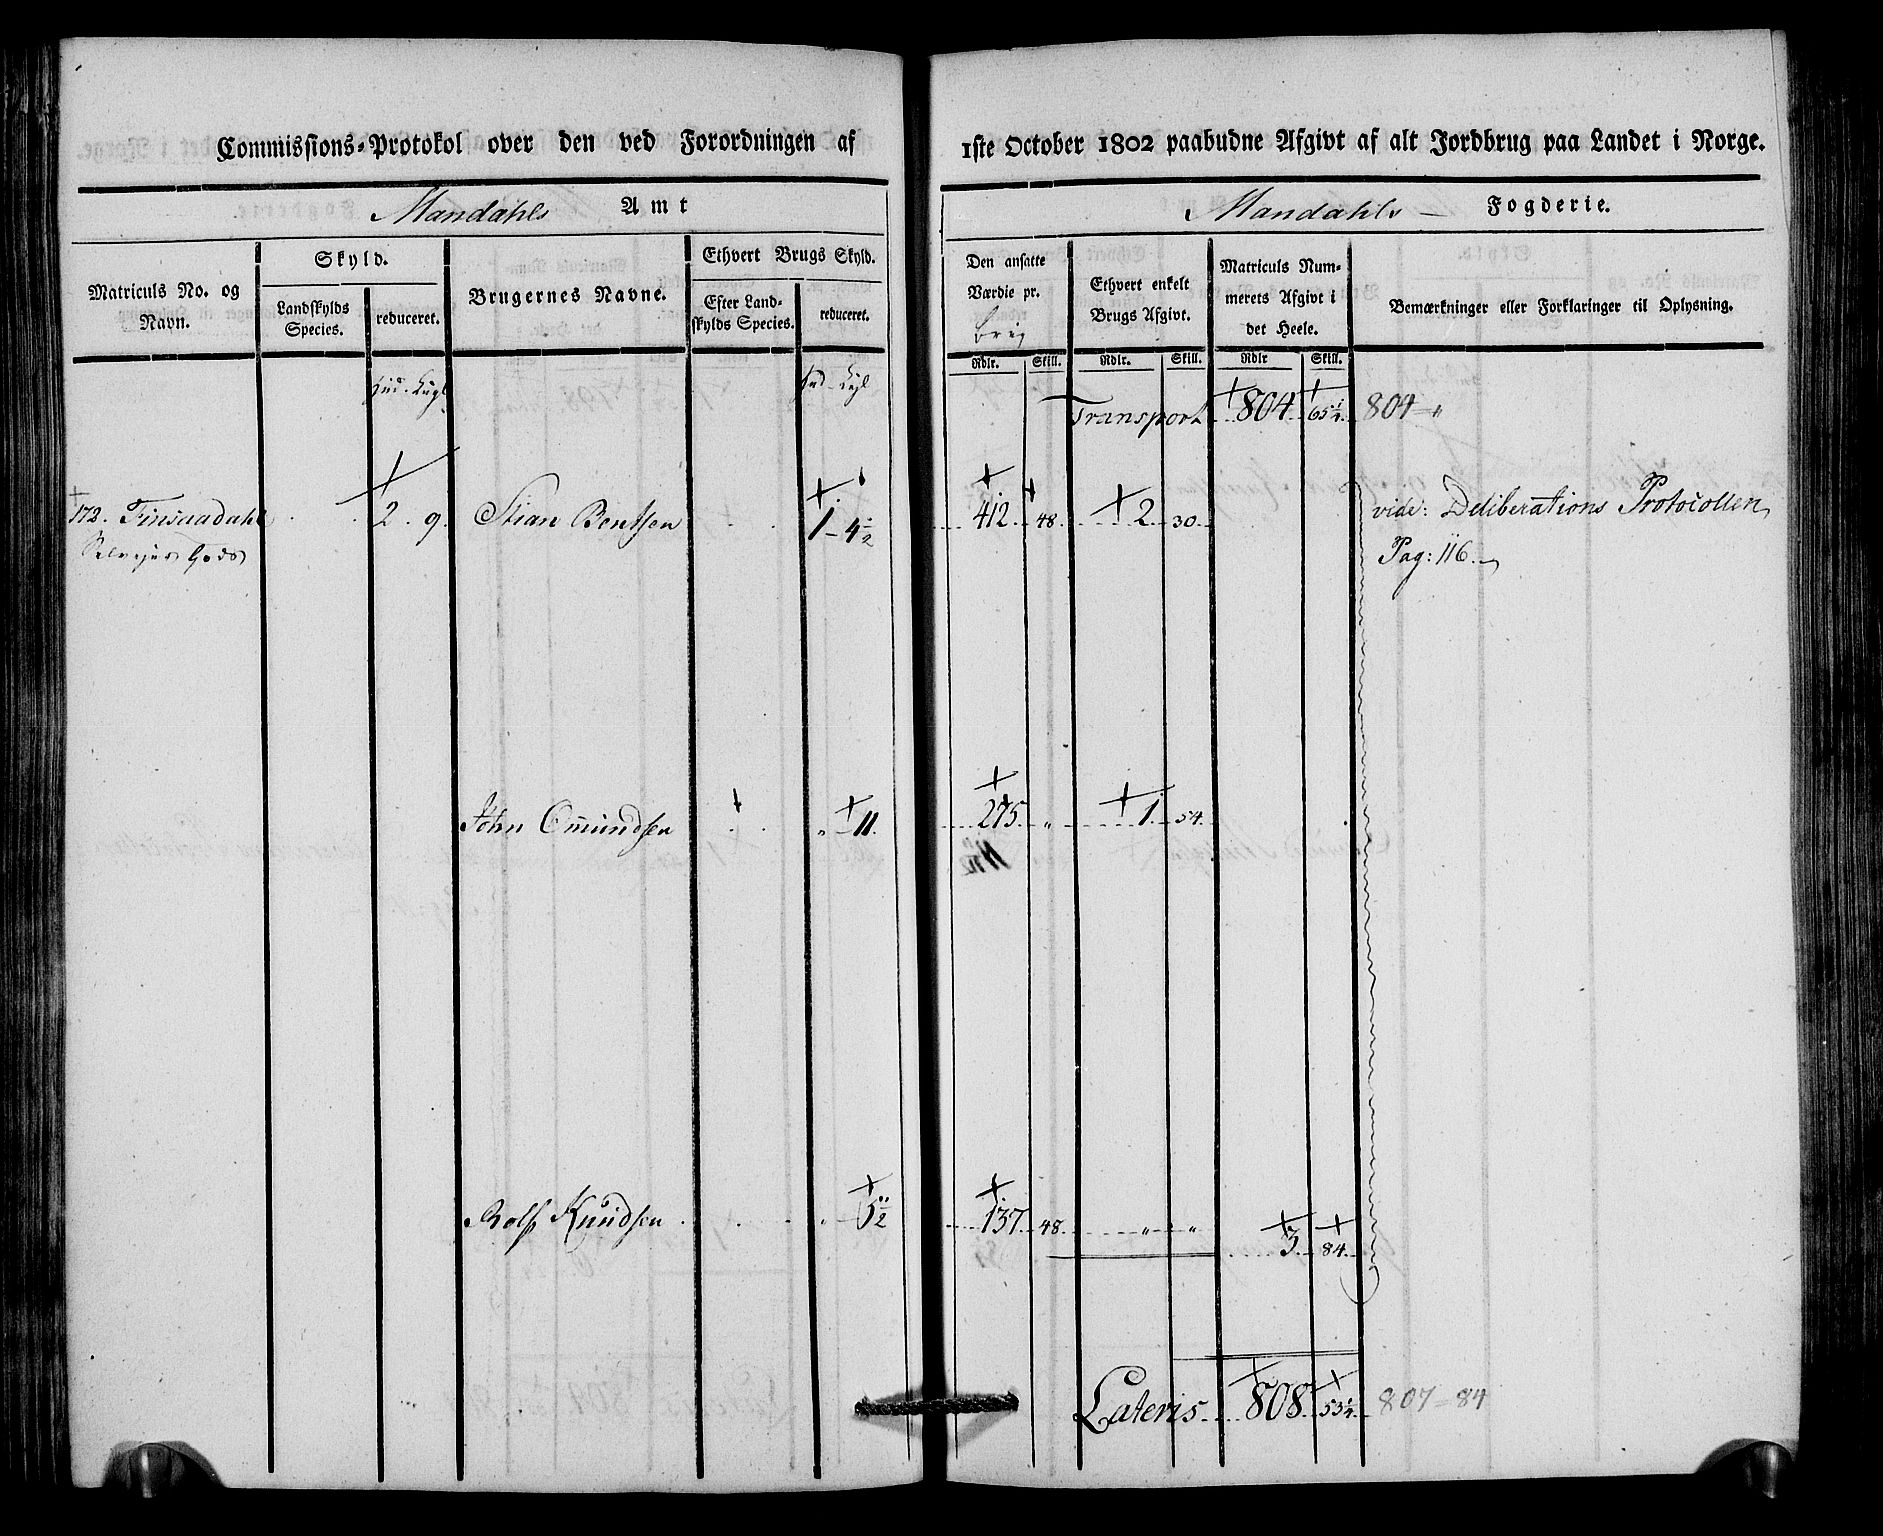 Commissions-Protokol over den ved Forordningen af 1ste October 1802 paabudne Afgivt af alt Jordbrug paa Landet i Norge.
Mandahls Amt
Mandahls Fogderie.
Matriculs No. og Navn.
Skyld.
Landskylds Species.
reduceret.
Brugernes Navne.
Ethvert Brugs Skyld.
Efter Landskylds Species.
reduceret.
Den ansatte Værdie pr.
Ethvert enkelt Brugs Afgivt.
Matriculs Nummerets Afgivt i det Heele.
Bemærkninger eller Forklaringer til Oplysning.
Rdlr. Skill. Rdlr. Skill. Rdlr Skill.
Transport 804 65 1/4 804
172. Finsaadahl 2. 9. Stian Bentsen 1 - 4 1/2 412 48 2 30 vide: Deliberations Protocollen
Selvejer Gods Pag: 116.
John Omundsen " 11. 275 " 1 54
Rolf Knudsen " 5 1/2 137 48 " " 3 84
Lateris 808 53 1/4 807 = 84